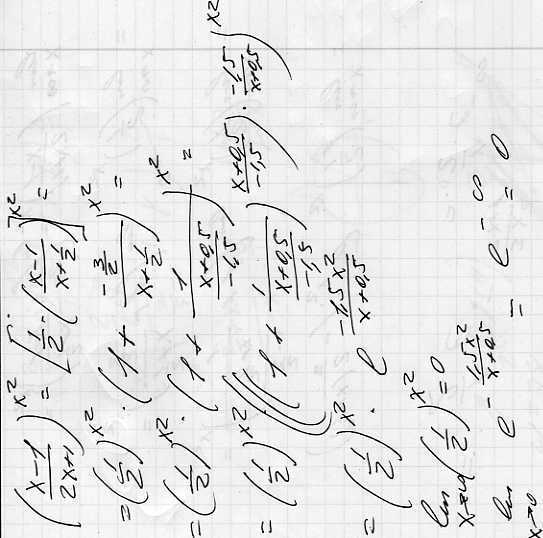 ((x-1)/(2x+1))^x² = [1/2 · ((x-1)/(x+1/2))]^x² =
= (1/2)^x² · (1 + (-3/2)/(x+1/2))^x² =
= (1/2)^x² · (1 + 1/((x+0,5)/(-1,5)))^x² =
= (1/2)^x² · (((1 + 1/((x+0,5)/(-1,5)))^((x+0,5)/(-1,5)))^((-1,5)/(x+0,5)))^x²
= (1/2)^x² · e^((-1,5x²)/(x+0,5))
lim (1/2)^x² = 0
lim e^(-(1,5x²)/(x+0,5)) = e^(-∞) = 0